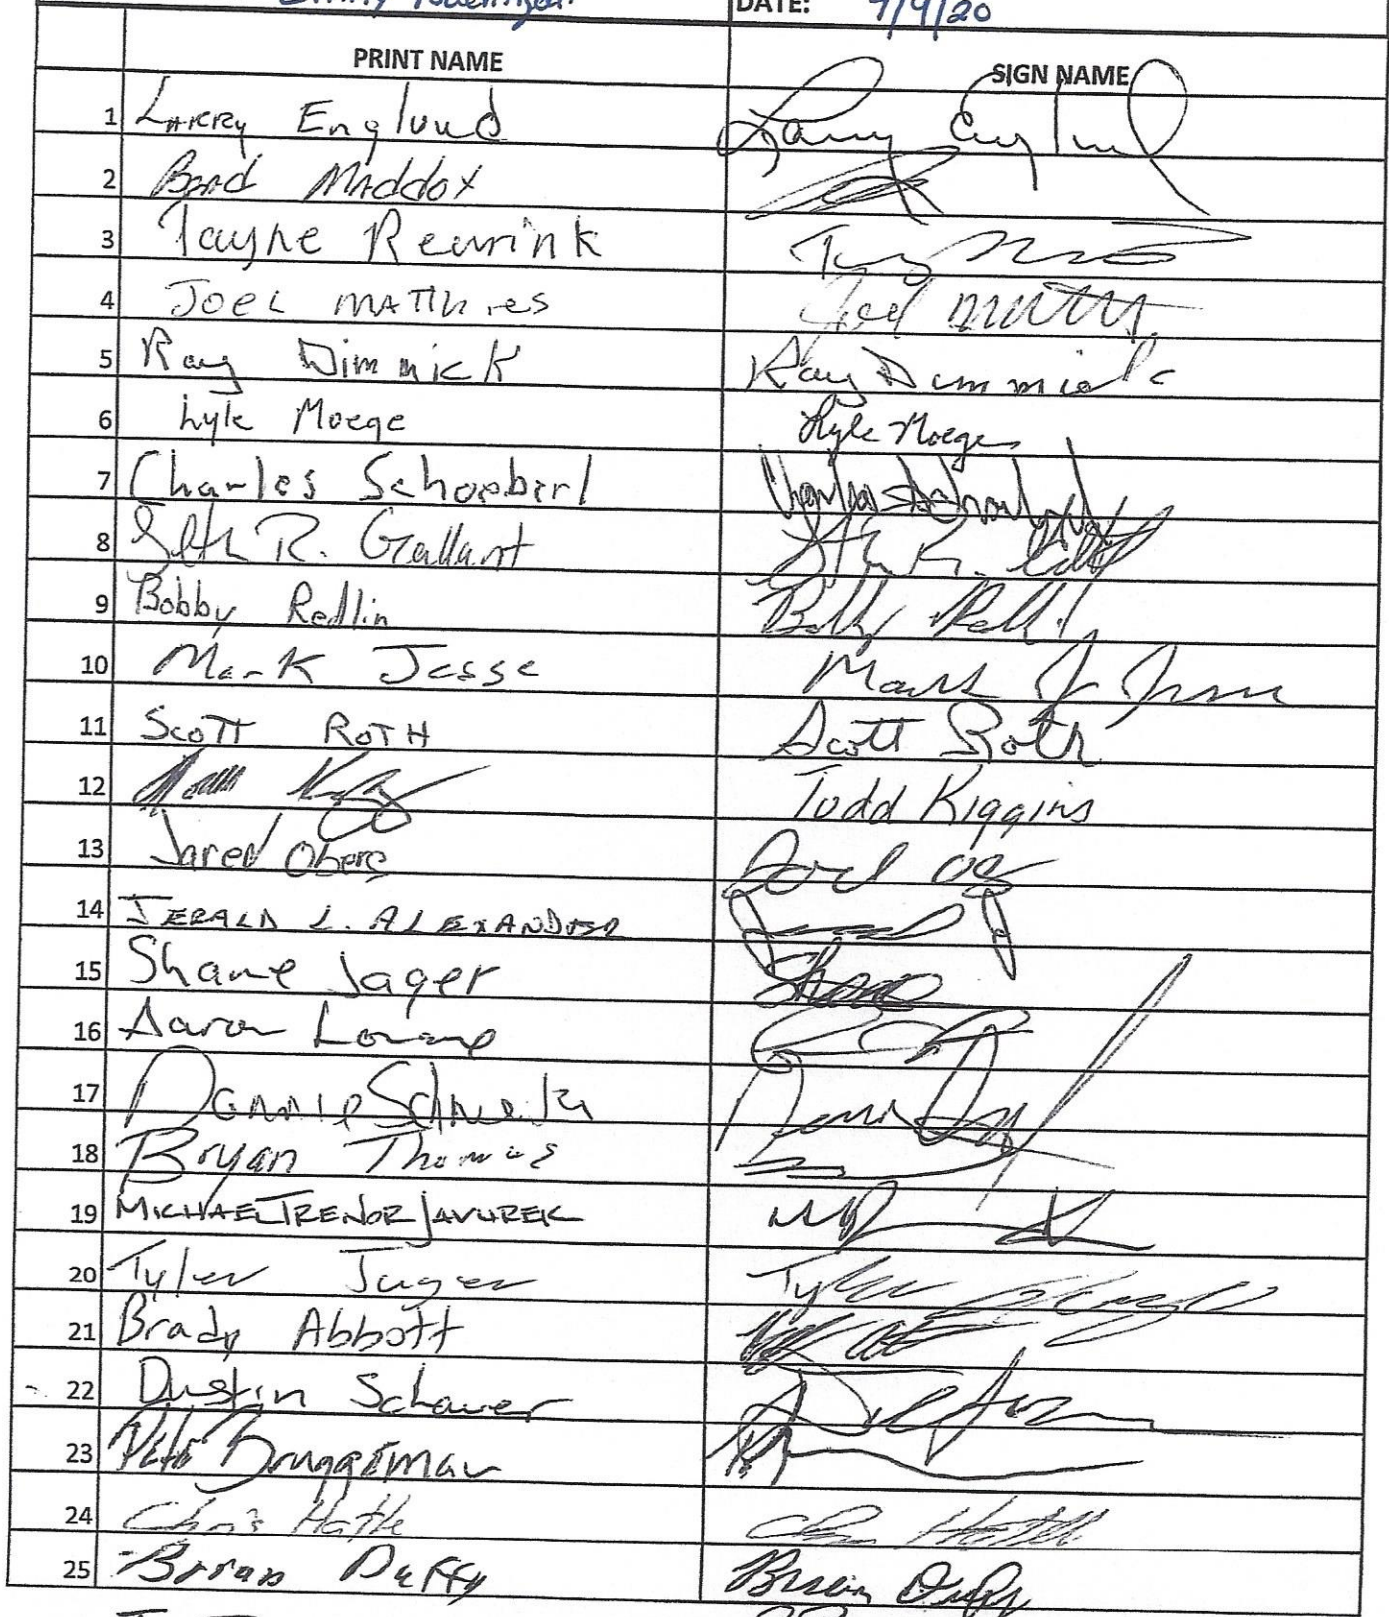 DATE: 7/9/20
PRINT NAME SIGN NAME
1 Larry Englund Larry Englund
2 Brad Maddox
3 Tayne Renrink
4 Joel Matthies Joel
5 Ray Dimmick Ray Dimmick
6 Lyle Moege Lyle Moege
7 Charles Schoeberl Charles
8 Seth R. Gallant Seth R.
9 Bobby Redlin Bobby
10 Mark Jesse Mark J Jesse
11 Scott Roth Scott Roth
12 Todd Kiggins
13 Jared Oberg
14 Jerald L. Alexander
15 Shane Jager Shane
16 Aaron
17 Donnie
18 Bryan Thomas
19 Michael Trenor Javurek
20 Tyler Jager Tyler
21 Brady Abbott
22 Dustin Schauer
23 Pete Bruggeman
24 Chris Hatle Hatle
25 Brian Duffy Brian Duffy